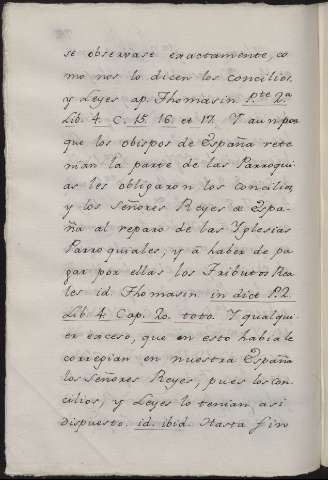 se observase exactamente, co
mo nos lo dicen los concilios
y Leyes ap. Thomasin. P.te 2.a
Lib. 4. C. 15. 16. et 17. Y aunpor
que los obispos de España rete
nian la parte de las Parroqui
as les obligaron los concilios,
y los Señores Reyes de Espa-
ña al reparo de las Yglesias
Parroquiales; y â haber de pa
gar por ellas los Tributos Rea
les id. Thomasin in dict P. 2.
Lib. 4. Cap. 20. toto. Y qualqui
er exceso, que en esto habia le
corregian en nuestra España
los Señores Reyes, pues los con
cilios, y Leyes lo tenian asi
dispuesto. id. ibid. Hasta fin